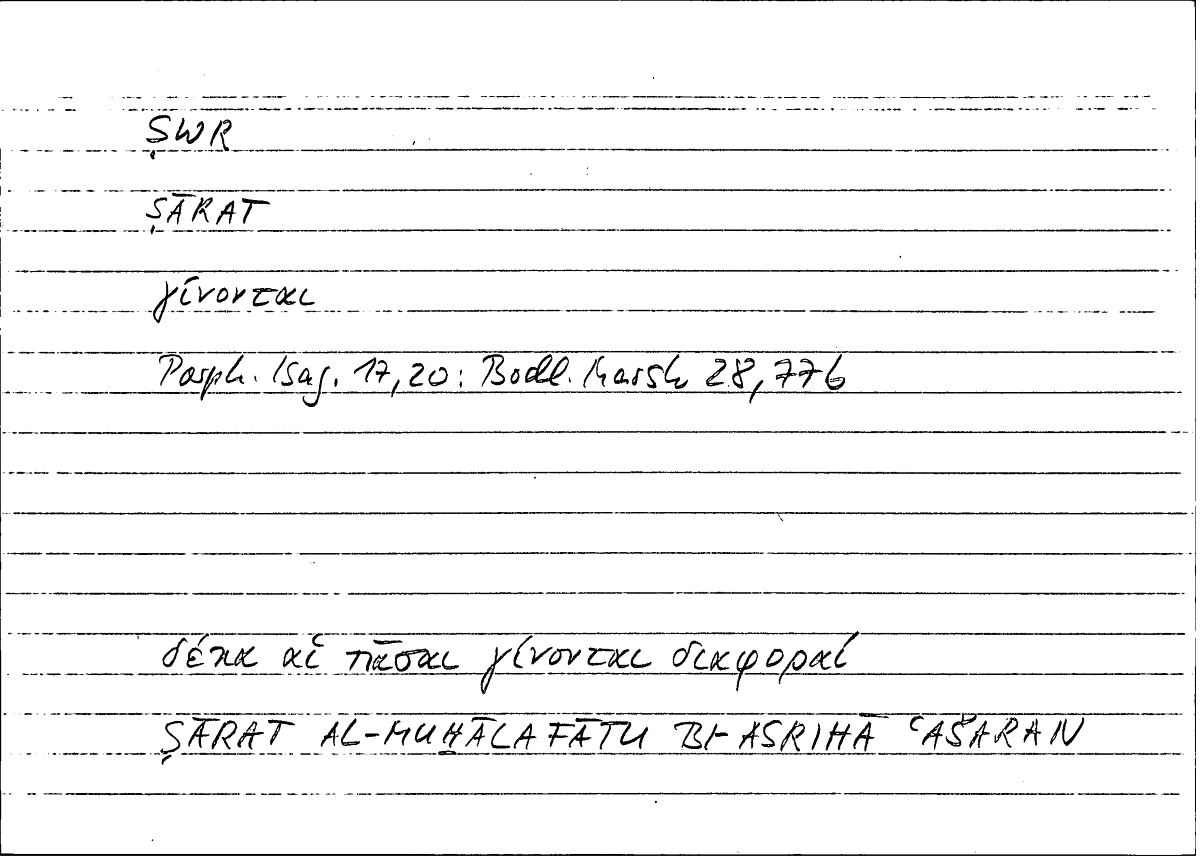 ṢWR
ṢĀRAT
γίνονται
Porph. Isag. 17,20: Bodl. Marsh 28,77b
δέκα αἱ πᾶσαι γίνονται διαφοραί
ṢĀRAT AL-MUḪĀLAFĀTU BI-ASRIHĀ ʿAŠARAN